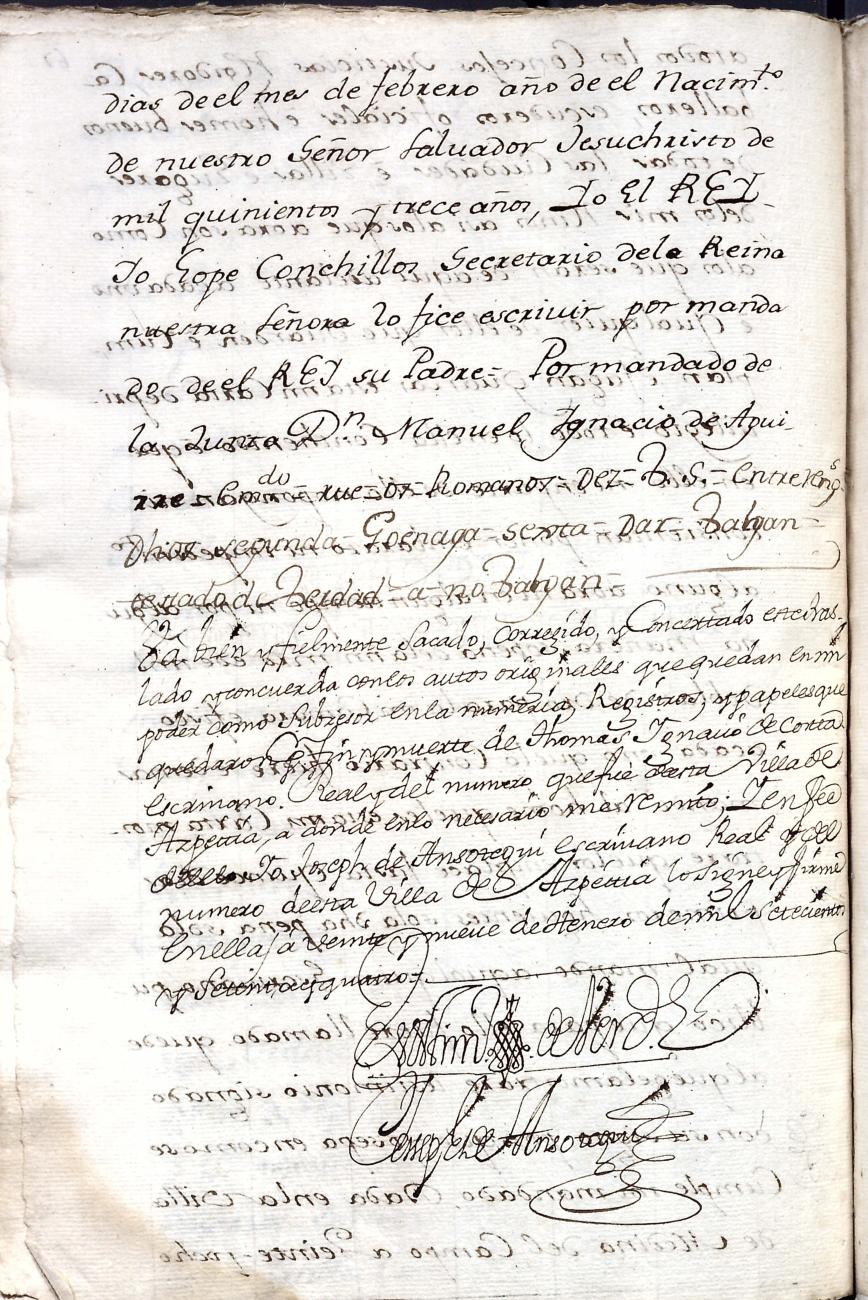 dias de el mes de febrero año de el Nacim.to
de nuestro Señor Saluador Jesuchristo de
mil quinientos y trece años, Yo El REY
Yo Lope Conchillos Secretario dela Reina
nuestra Señora lo fice escriuir por manda
do de el REY su Padre = Por mandado de
la Junta Dn Manuel Ignacio de Agui
rre = Emdo = rue = os = Romanos = Dez = V. S. = entrereng.s
Dhios segunda = Goenaga = sexta = Dar = Valgan =
testado d Verdad = a = no Valgan
Va bien y fielmente sacado, corregido, y Concertado este tras-
lado y concuerda con los autos originales que quedan en mi
poder como Subzesor en la numeria, Registros, y papeles que
quedaron Por fin y muerte de Thomas Ignacio de Corta
Escriuano Real y del numero que fue desta Villa de
Azpeitia, a donde en lo nezesario me remito; Y en fee
de ello Yo Joseph de Ansotegui escriuano Real y del
numero de esta Villa de Azpeitia lo signe y firme
en ella, a Veinte y nueue de Henero de mil setecientos
y Setenta y quatro =
En testim.o de Verd.
Joseph de Ansotegui